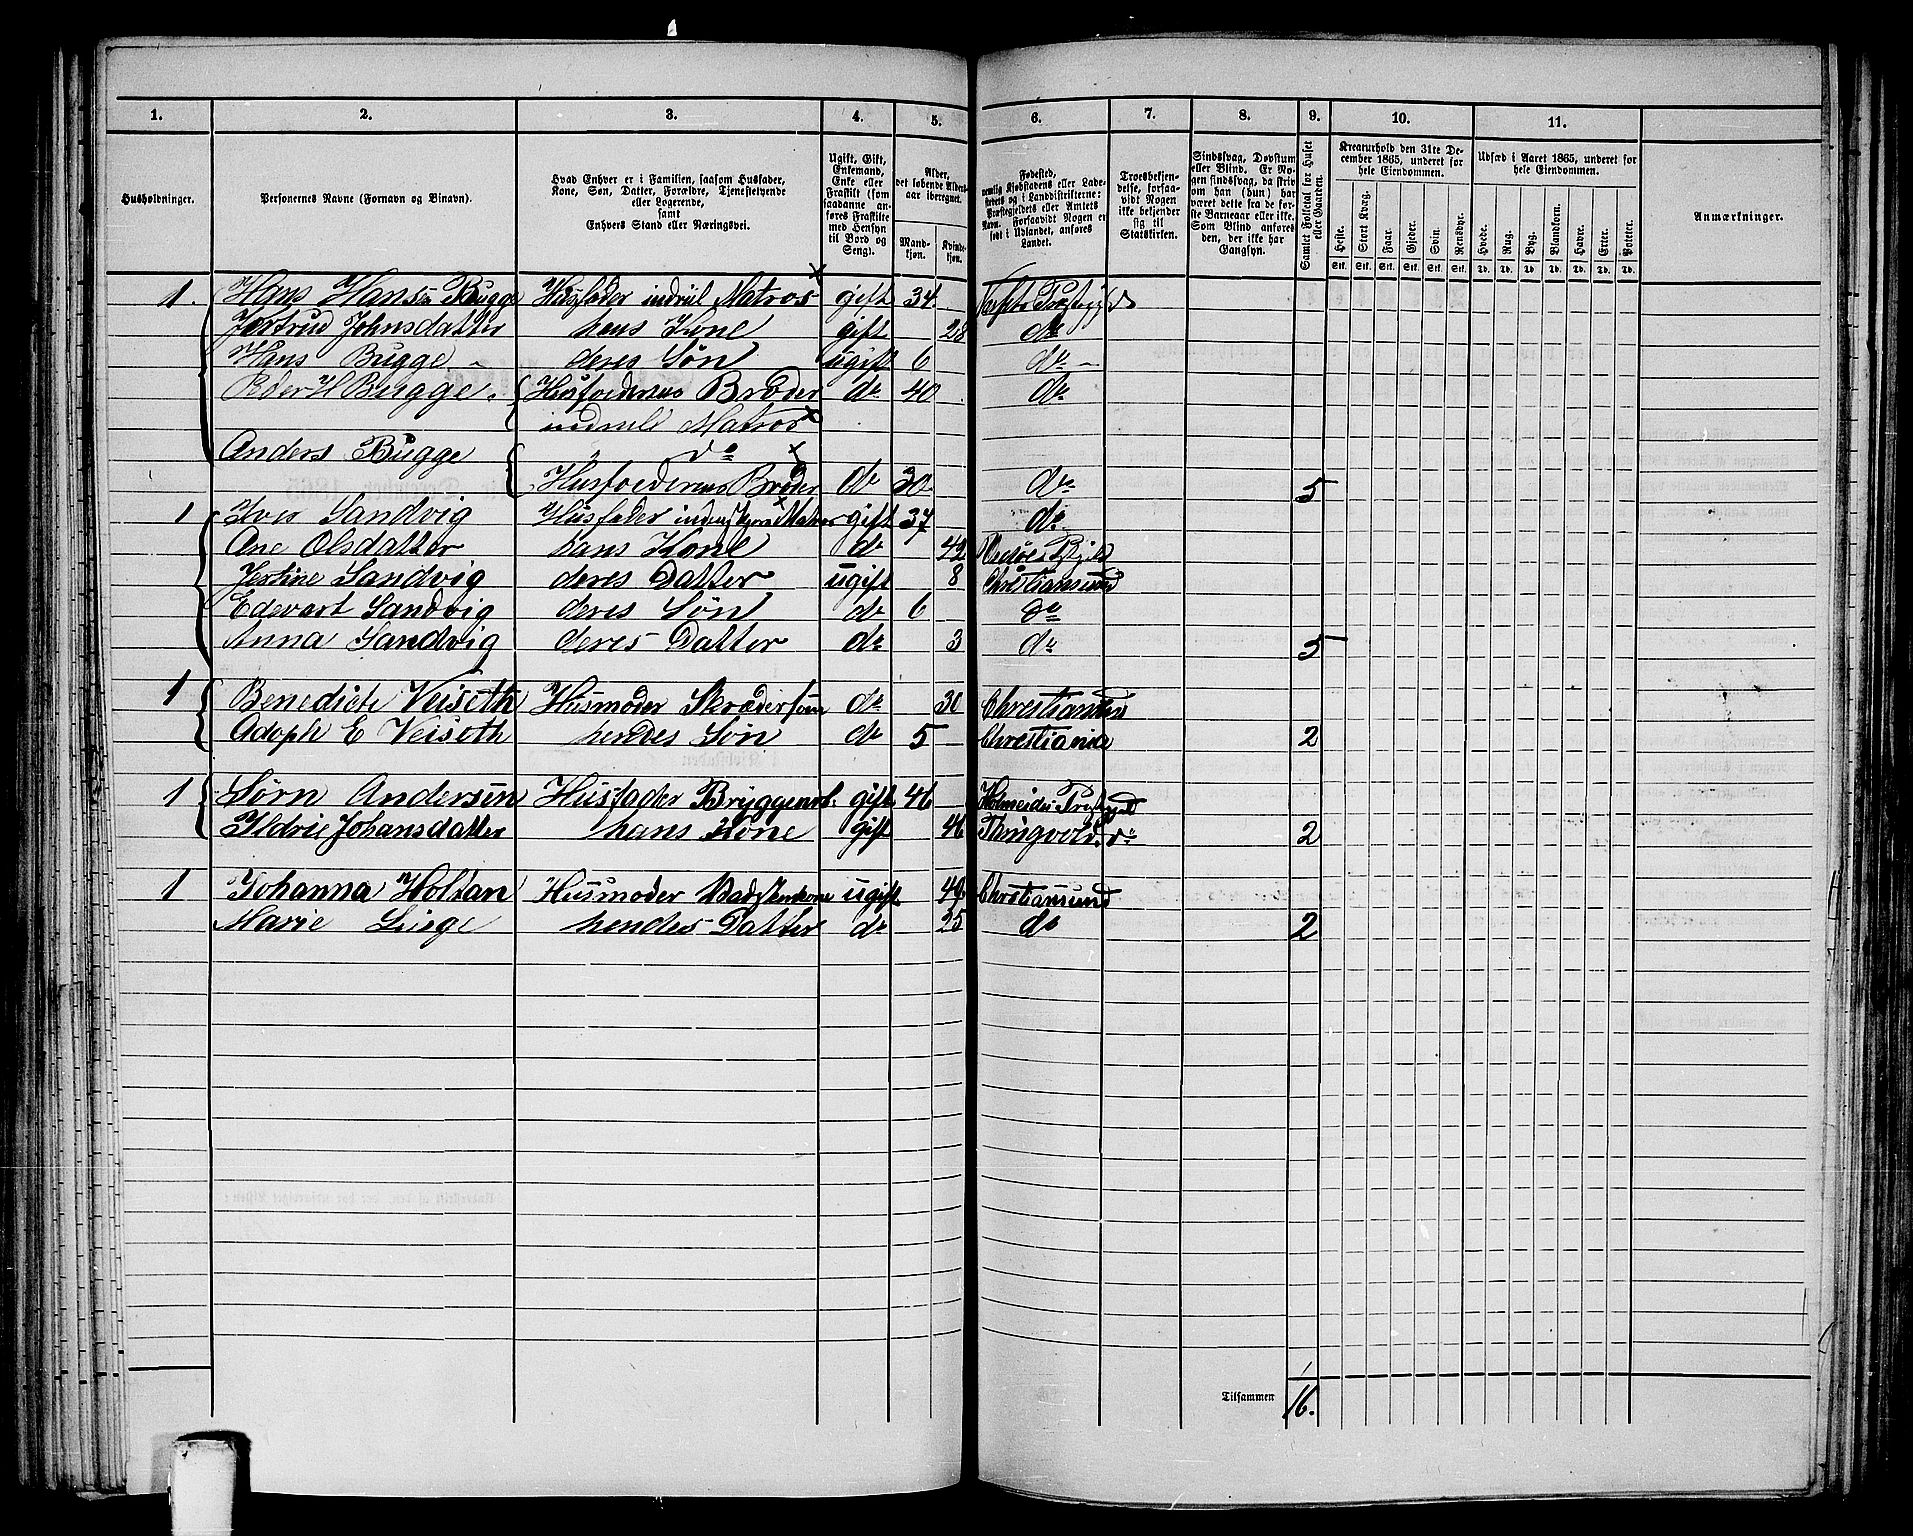 1. 2. 3. 4. 5. 6. 7. 8. 9. 10. 11.
Husholdninger.
Personernes Navne (Fornavn og Binavn).
Hvad Enhver er i Familien, saasom Husfader,
Kone, Søn, Datter, Forældre, Tjenestetyende
eller Logerende,
samt
Enhvers Stand eller Næringsvei.
Ugift, Gift,
Enkemand,
Enke eller
Fraskilt (som
saadanne an-
føres Fraskilte
med Hensyn
til Bord og
Seng).
Alder,
det løbende Alders-
aar iberegnet.
Mand-
kjøn.
Kvinde-
kjøn.
Fødested,
nemlig Kjøbstadens eller Lade-
stedets og i Landdistrikterne:
Præstegjeldets eller Amtets
Navn. Forsaavidt Nogen er
født i Udlandet, anføres
Landet.
Troesbekjen-
delse, forsaa-
vidt Nogen
ikke bekjender
sig til
Statskirken.
Sindssvag, Døvstum
eller Blind. Er No-
gen sindssvag, da skriv
om han (hun) har
været dette fra de før-
ste Barneaar eller ikke.
Som Blind anføres
den, der ikke har
Gangsyn.
Samlet Folketal for Huset
eller Gaarden.
Kreaturhold den 31te De-
cember 1865, underet for
hele Eiendommen.
Heste. Stort Kvæg. Faar. Gjeder. Svin. Rensdyr.
Stk. Stk. Stk. Stk. Stk. Stk.
Udsæd i Aaret 1865, underet for
hele Eiendommen.
Hvede. Rug. Byg. Blandkorn. Havre. Erter. Poteter.
Td. Td. Td. Td. Td. Td. Td.
Anmærkninger.
1. Hans Hansen Bugge Husfader indrul Matros gift 34
Jertrud Johnsdatter hans Kone gift 28 do
Hans Bugge deres Søn ugift 6 do
Peder H Bugge Husfoederens Broder do 40 do
indrul Matros
Anders Bugge do
Husfoederens Broder do 30 do 5
1 Iver Sandvig Husfader gift 37 do
Ane Olsdatter hans Kone do 42
Jertine Sandvig deres Datter ugift 8 Christiansund
Edevart Sandvig deres Søn do 6 do
Anna Sandvig deres Datter do 3 do 5
1 Benedicte Veiseth Husmoder do 30
Adoph E Veiseth hendes Søn do 5 Christiania 2
1 Sørn Andersen Husfader gift 46
Ildrie Johansdatter hans Kone gift 46 Thingvold do 2
1 Johanna Holtan Husmoder ugift Christiansund
Marie Liege hendes Datter do 25 do 2
Tilsammen 16.